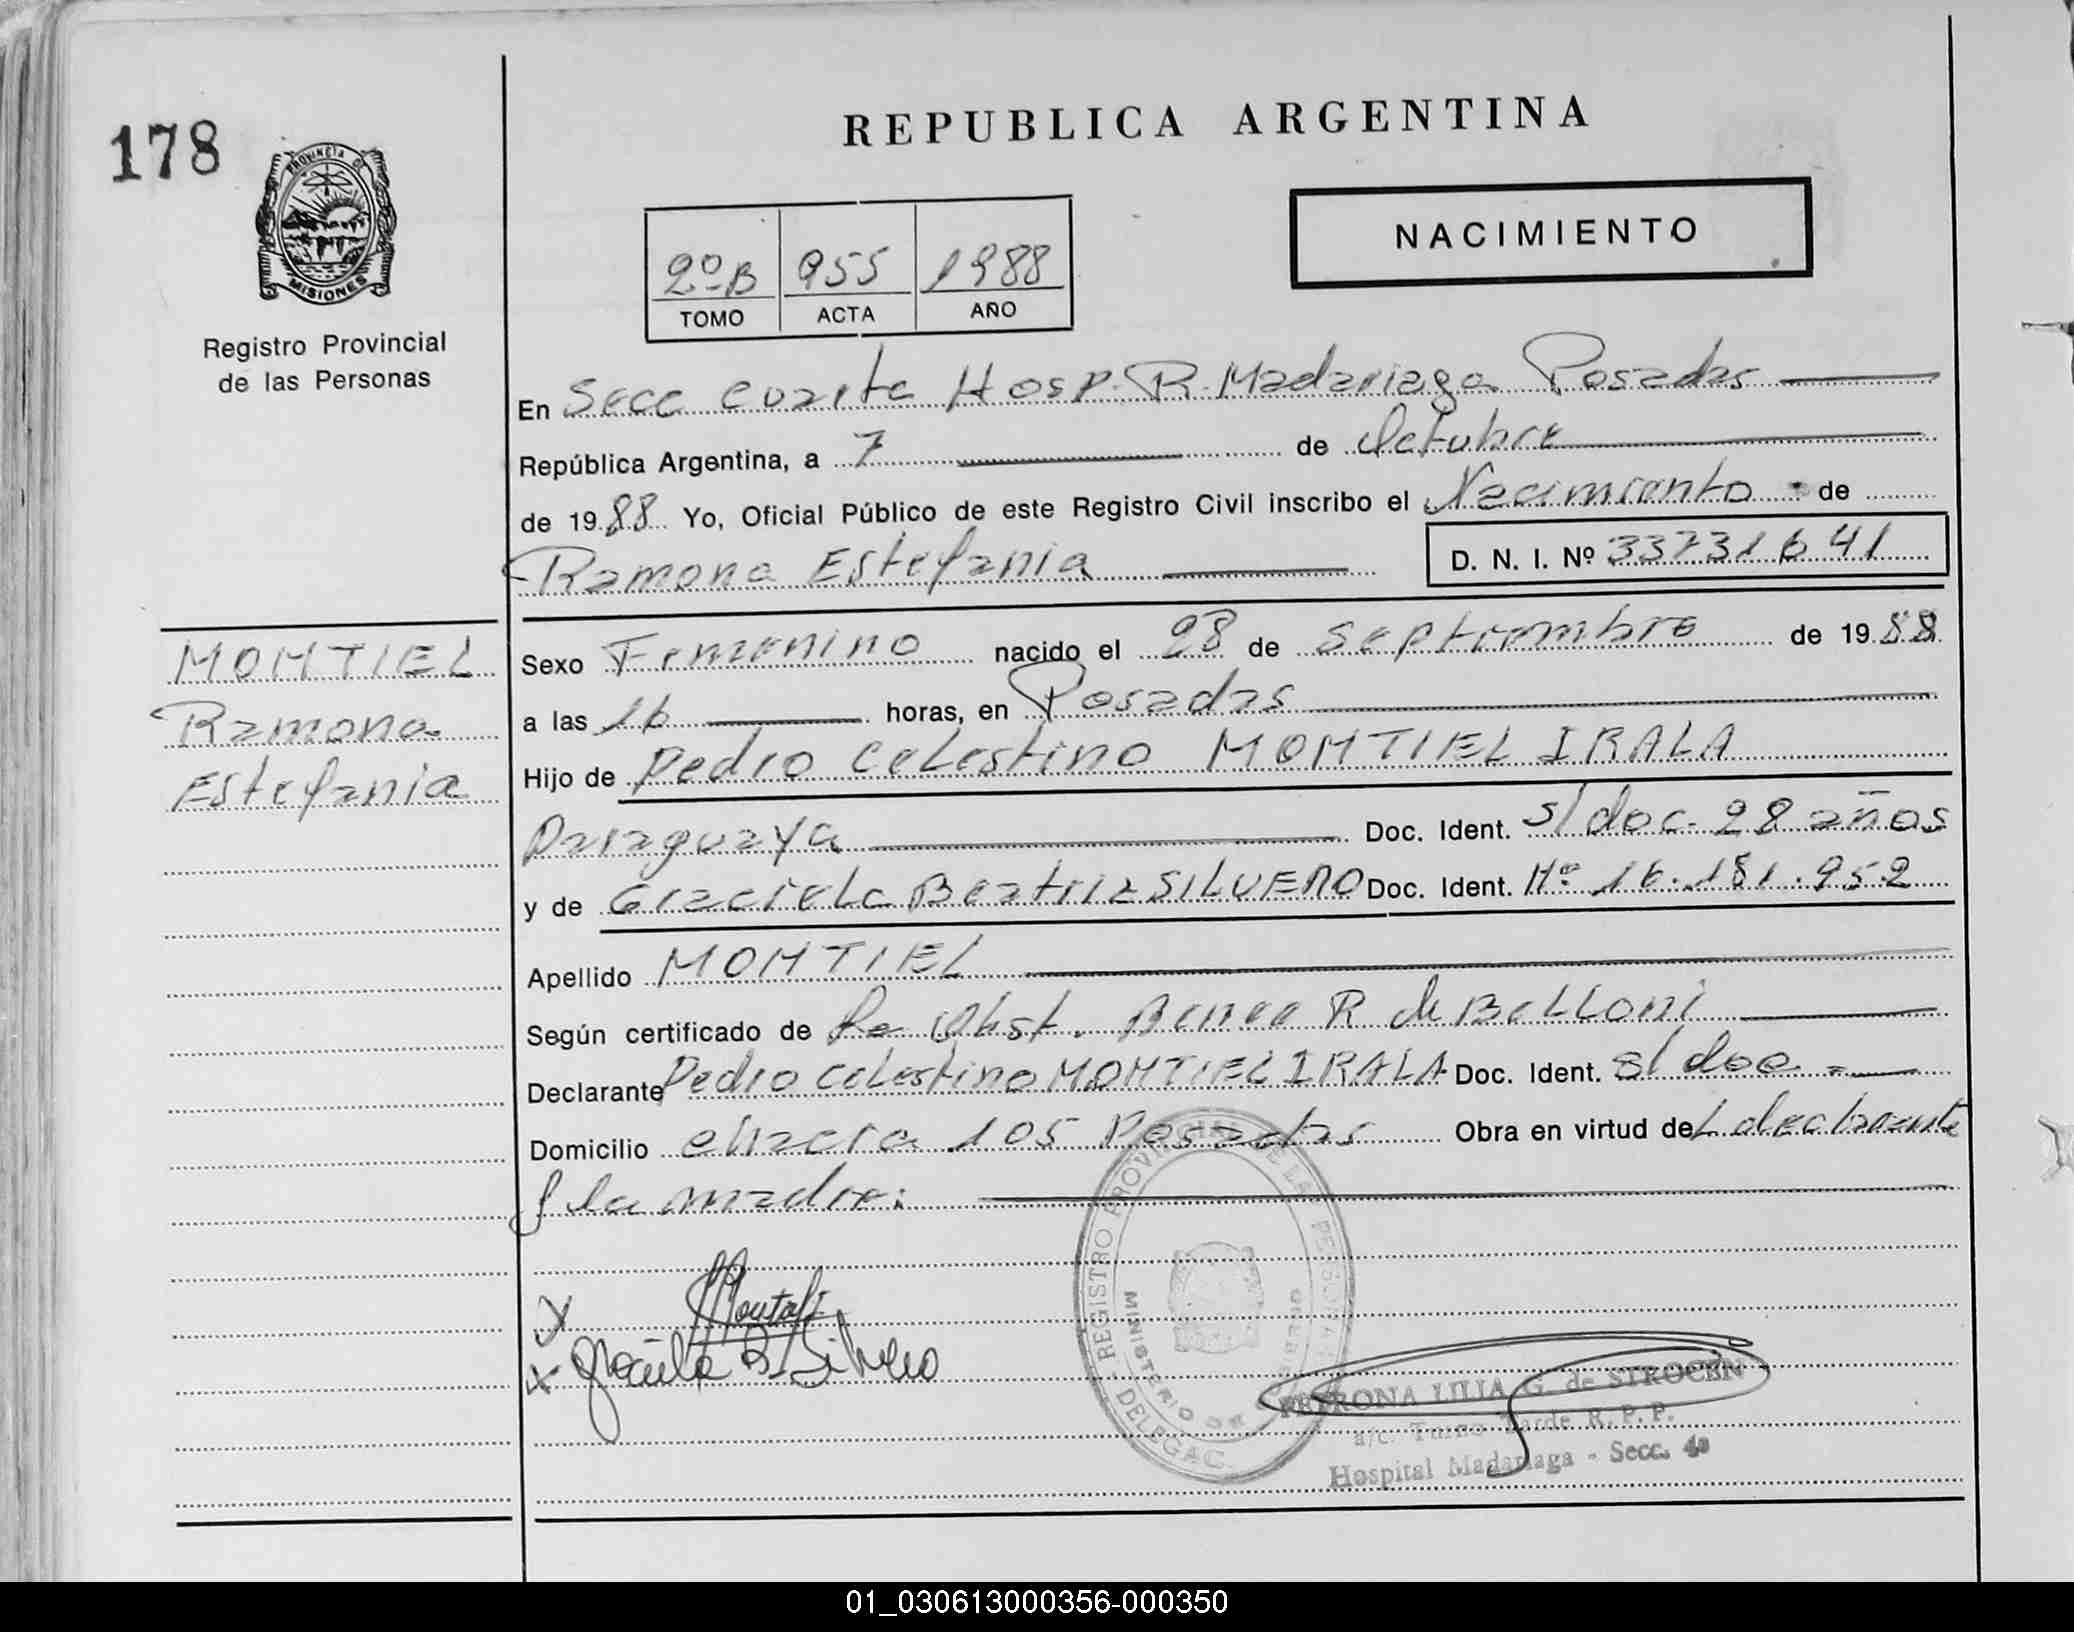 178
REPUBLICA ARGENTINA
PROVINCIA DE
MISIONES
NACIMIENTO
2º B 955 1988
TOMO ACTA AÑO
Registro Provincial
de las Personas
En Secc cuarta Hosp. R. Madariaga Posadas
República Argentina, a 7 de Octubre
de 1988 Yo, Oficial Público de este Registro Civil inscribo el Nacimiento de
Ramona Estefania D. N. I. Nº 33731641
MONTIEL
Ramona
Estefania
Sexo Femenino nacido el 28 de Septiembre de 1988
a las 16 horas, en Posadas
Hijo de Pedro Celestino MONTIEL IRALA
Paraguaya Doc. Ident. s/doc. 28 años
y de Graciela Beatriz SILVERO Doc. Ident. Nº 16.181.952
Apellido MONTIEL
Según certificado de la Obst. R de Belloni
Declarante Pedro Celestino MONTIEL IRALA Doc. Ident. s/doc
Domicilio chacra 105 Posadas Obra en virtud del declarante
y la madre.
Graciela B. Silvero
REGISTRO PROVINCIAL DE LAS PERSONAS
MINISTERIO DE GOBIERNO
DELEGAC.
PETRONA LILIA G. de SIROCEN
a/c. Turno Tarde R. P. P.
Hospital Madariaga - Secc. 4a
01_030613000356-000350